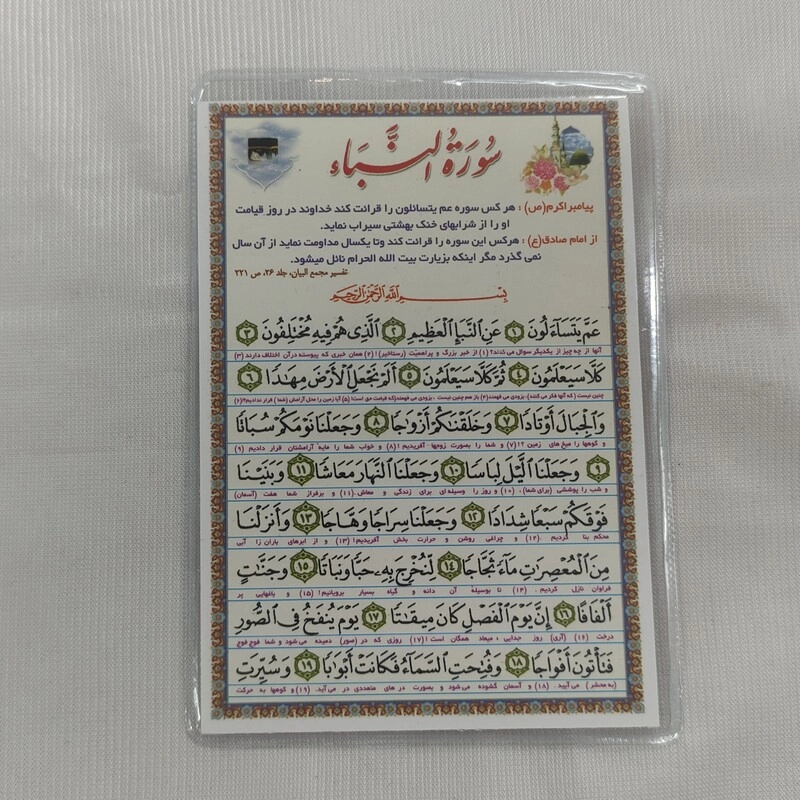 سُورَةُ النَّبَاء
پیامبراکرم(ص) : هر کس سوره عم یتسائلون را قرائت کند خداوند در روز قیامت
او را از شرابهای خنک بهشتی سیراب نماید.
از امام صادق(ع) : هرکس این سوره را قرائت کند وتا یکسال مداومت نماید از آن سال
نمی گذرد مگر اینکه بزیارت بیت الله الحرام نائل میشود.
تفسیر مجمع البیان، جلد ۲۶، ص ۲۲۱
بِسْمِ اللهِ الرَّحْمٰنِ الرَّحِیمِ
عَمَّ يَتَسَآءَلُونَ ۱ عَنِ النَّبَإِ الْعَظِيمِ ۲ الَّذِي هُمْ فِيهِ مُخْتَلِفُونَ ۳
آنها از چه چیز از یکدیگر سوال می کنند؟ (۱) از خبر بزرگ و پراهمیت (رستاخیز)! (۲) همان خبری که پیوسته درآن اختلاف دارند (۳)
كَلَّا سَيَعْلَمُونَ ۴ ثُمَّ كَلَّا سَيَعْلَمُونَ ۵ أَلَمْ نَجْعَلِ الْأَرْضَ مِهَادًا ۶
چنین نیست (که آنها فکر می کنند)، بزودی می فهمند(۴) باز هم چنین نیست ، بزودی می فهمند(که قیامت حق است)! (۵) آیا زمین را محل آرامش (شما) قرار ندادیم؟(۶)
وَالْجِبَالَ أَوْتَادًا ۷ وَخَلَقْنَاكُمْ أَزْوَاجًا ۸ وَجَعَلْنَا نَوْمَكُمْ سُبَاتًا
و کوهها را میخ های زمین ؟! (۷) و شما را بصورت زوجها آفریدیم! (۸) و خواب شما را مایه آرامشتان قرار دادیم (۹)
۹ وَجَعَلْنَا اللَّيْلَ لِبَاسًا ۱۰ وَجَعَلْنَا النَّهَارَ مَعَاشًا ۱۱ وَبَنَيْنَا
و شب را پوششی (برای شما)، (۱۰) و روز را وسیله ای برای زندگی و معاش، (۱۱) و برفراز شما هفت (آسمان)
فَوْقَكُمْ سَبْعًا شِدَادًا ۱۲ وَجَعَلْنَا سِرَاجًا وَهَّاجًا ۱۳ وَأَنْزَلْنَا
محکم بنا کردیم . (۱۲) و چراغی روشن و حرارت بخش آفریدیم! (۱۳) و از ابرهای باران زا آبی
مِنَ الْمُعْصِرَاتِ مَاءً ثَجَّاجًا ۱۴ لِنُخْرِجَ بِهِ حَبًّا وَنَبَاتًا ۱۵ وَجَنَّاتٍ
فراوان نازل کردیم . (۱۴) تا بوسیلهٔ آن دانه و گیاه بسیار برویانیم! (۱۵) و باغهایی پر
أَلْفَافًا ۱۶ إِنَّ يَوْمَ الْفَصْلِ كَانَ مِيقَاتًا ۱۷ يَوْمَ يُنْفَخُ فِي الصُّورِ
درخت (۱۶) (آری) روز جدایی ، میعاد همگان است! (۱۷) روزی که در (صور) دمیده می شود و شما فوج فوج
فَتَأْتُونَ أَفْوَاجًا ۱۸ وَفُتِحَتِ السَّمَاءُ فَكَانَتْ أَبْوَابًا ۱۹ وَسُيِّرَتِ
(به محشر) می آیید . (۱۸) و آسمان گشوده می شود و بصورت در های متعددی در می آید. (۱۹) و کوهها به حرکت